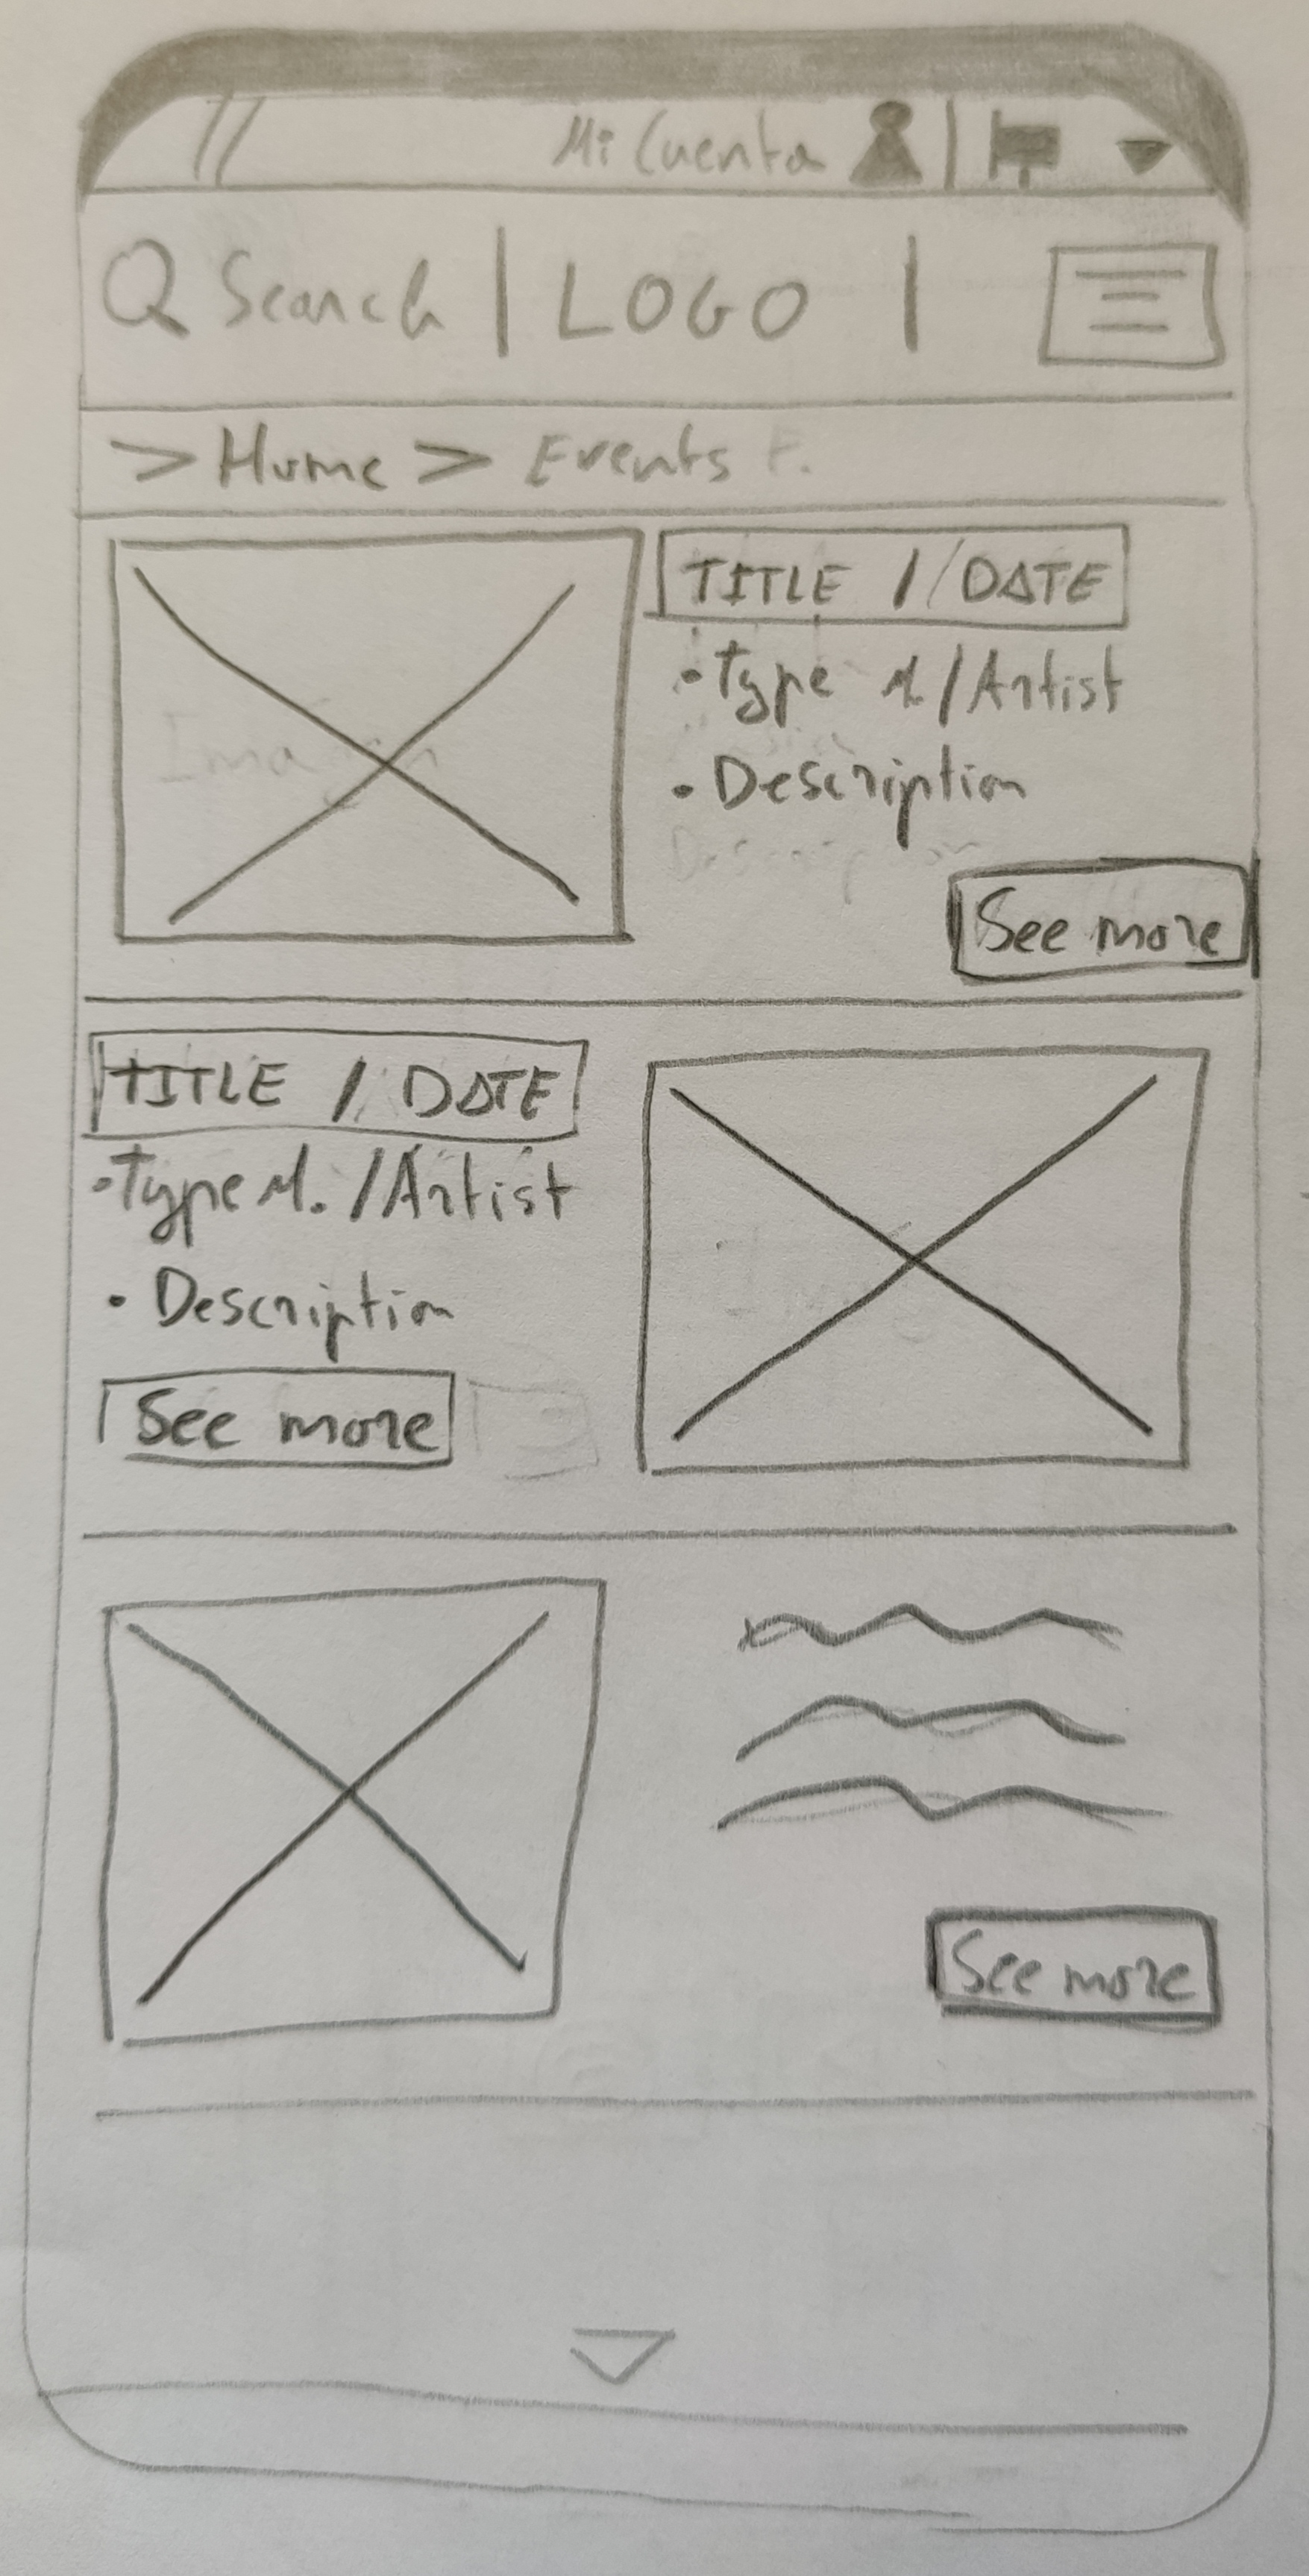 Mi Cuenta
Search | LOGO |
> Home > Events
TITLE / DATE
• Type M. / Artist
• Description
See more
TITLE / DATE
• Type M. / Artist
• Description
See more
See more